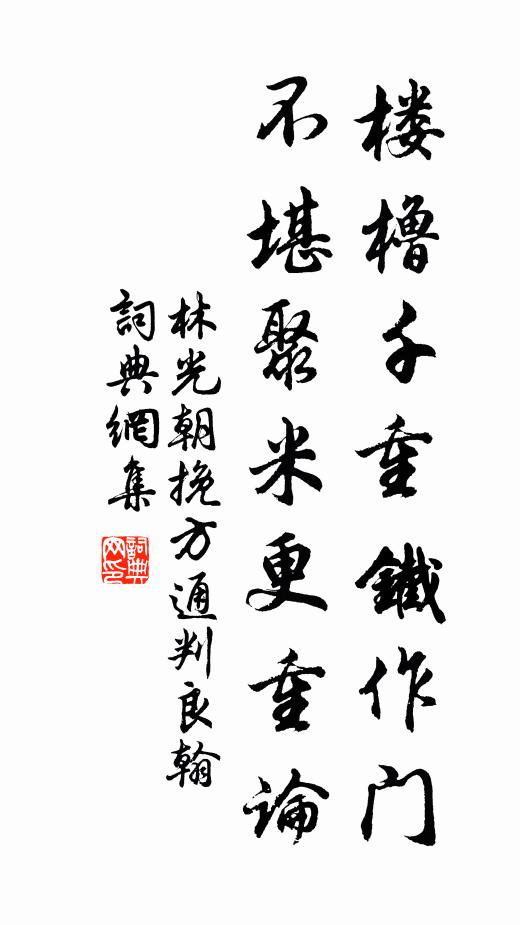 楼櫓千重鐵作门
不堪聚米更重論
林光朝挽方通判良翰
詞典網集
詞典网印